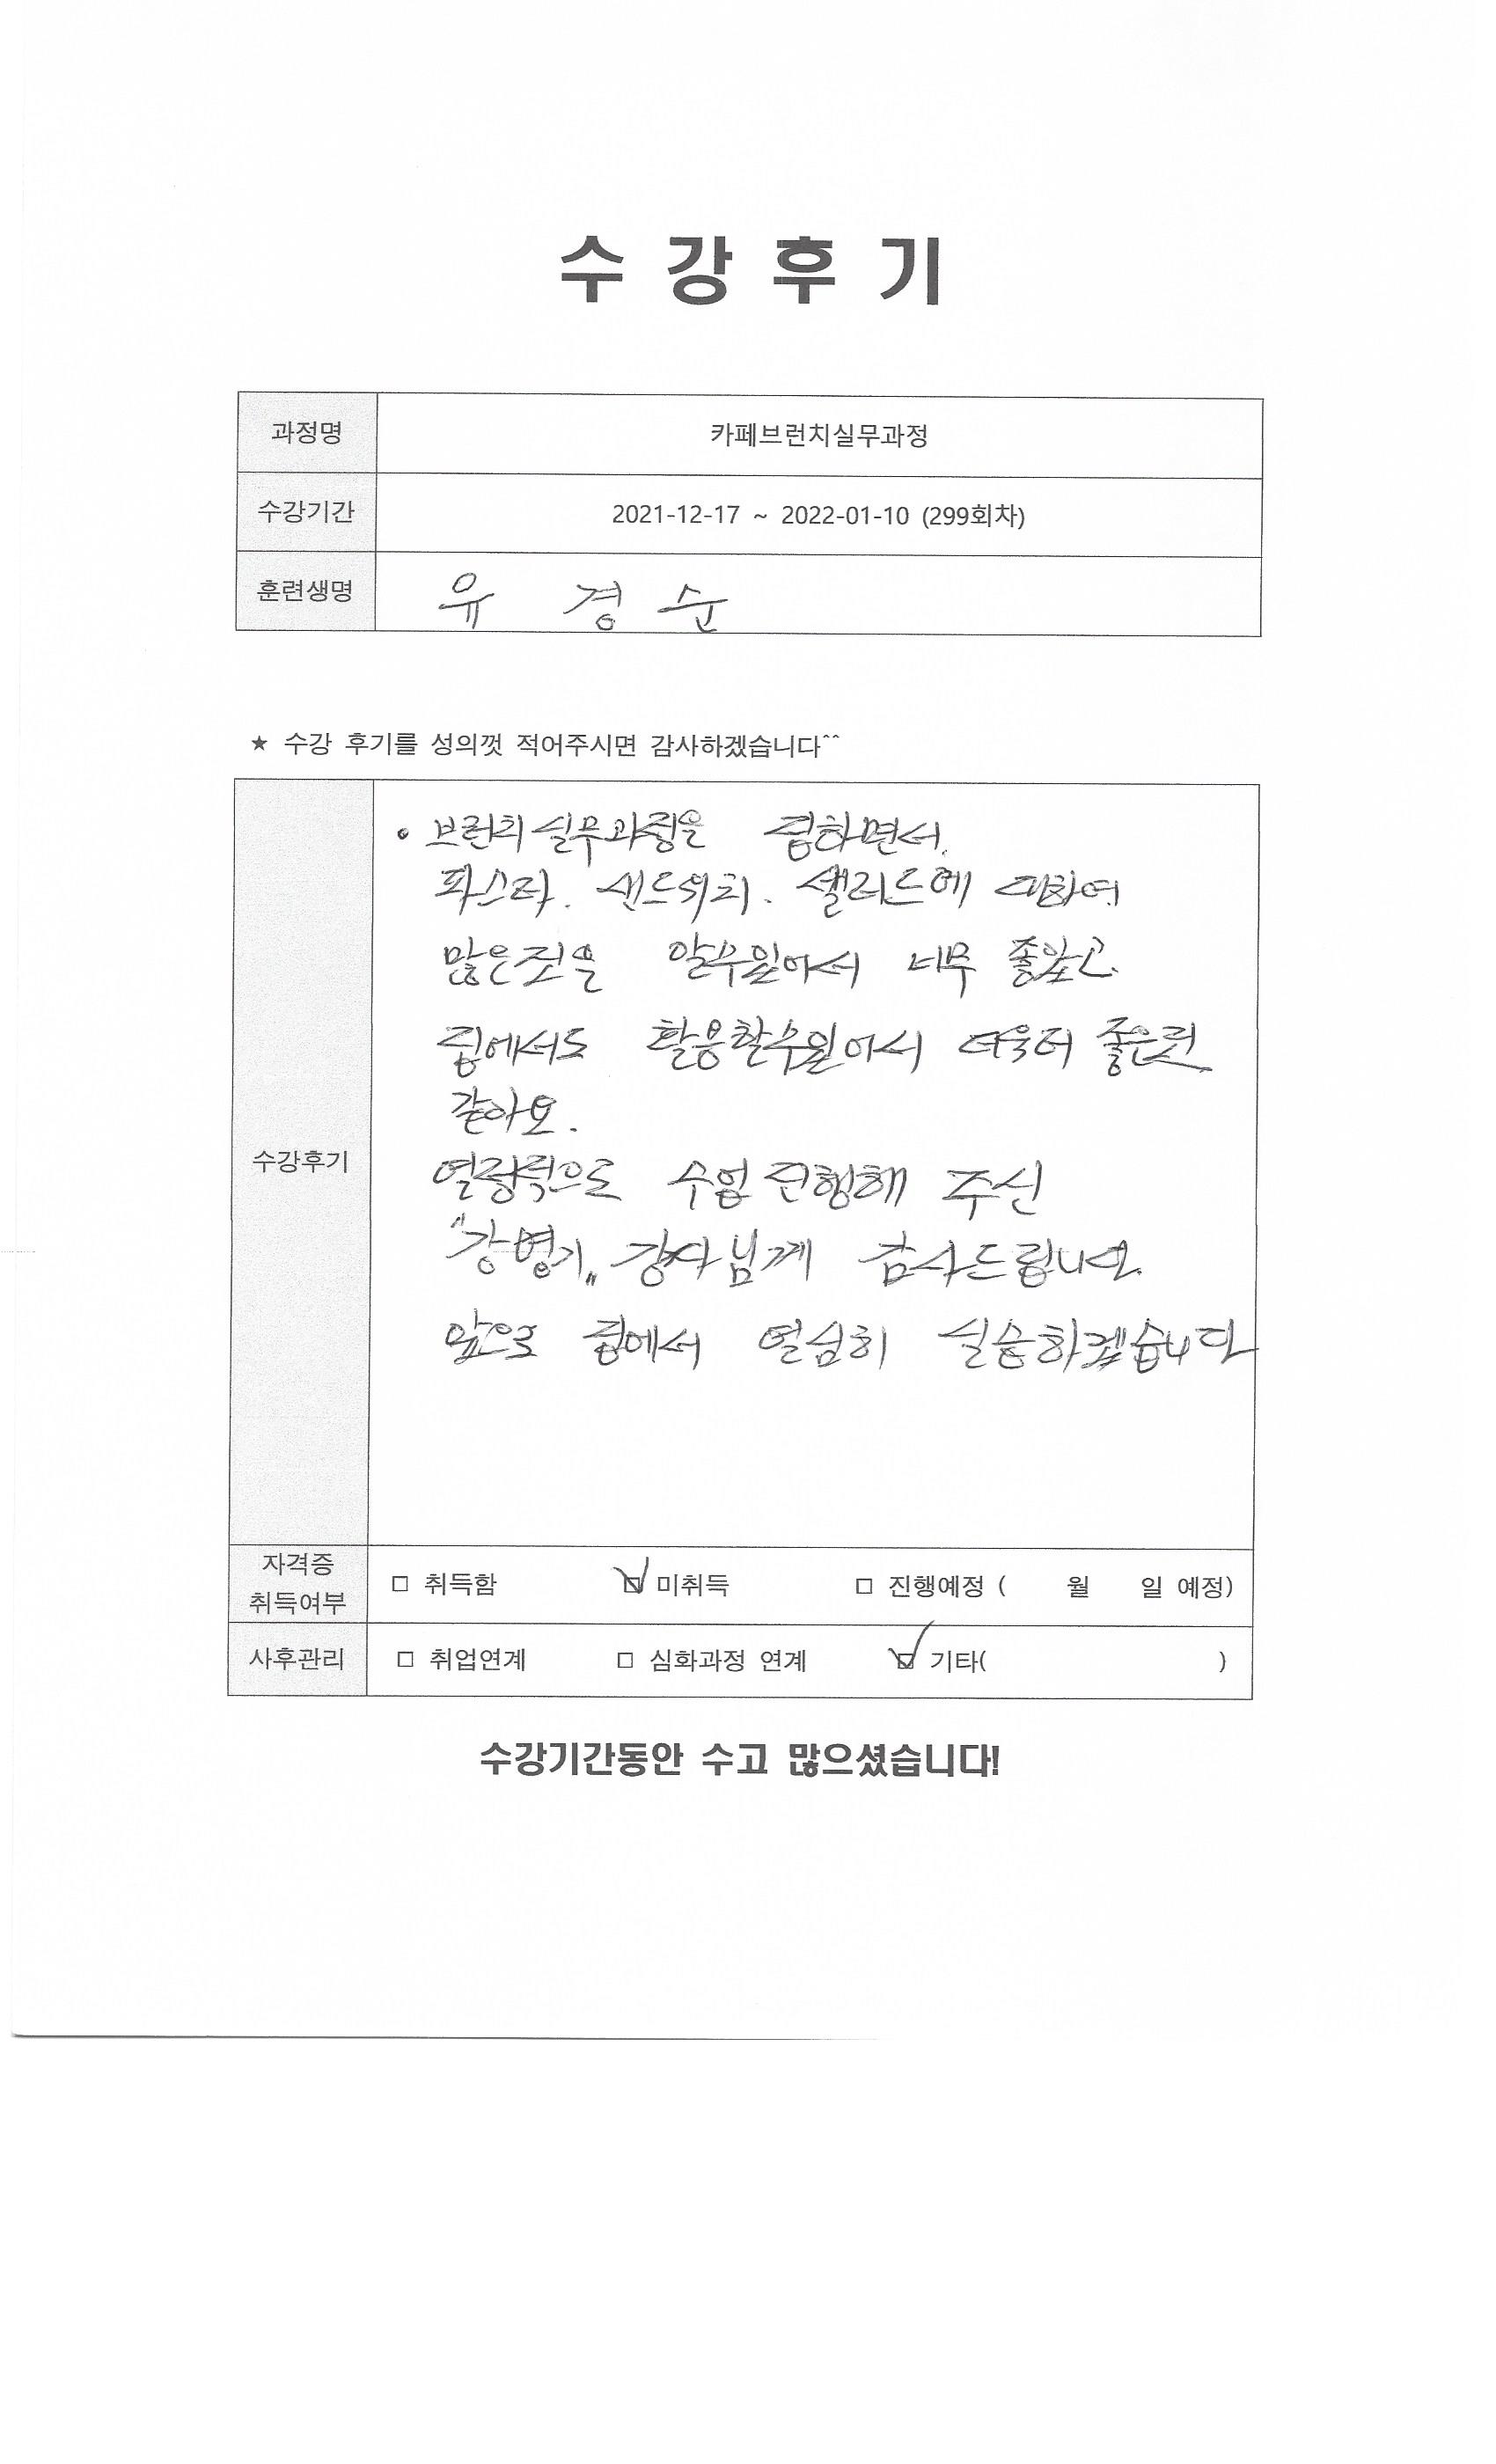 수강후기
과정명 카페브런치실무과정
수강기간 2021-12-17 ~ 2022-01-10 (299회차)
훈련생명 유 경 순
★ 수강 후기를 성의껏 적어주시면 감사하겠습니다^^
수강후기
• 브런치 실무과정을 접하면서.
파스타. 샌드위치. 샐러드에 대하여
많은것을 알수있어서 너무 좋았고.
집에서도 활용할수있어서 더욱더 좋은것
같아요.
열정적으로 수업 진행해 주신
"강병기" 강사님께 감사드립니다.
앞으로 집에서 열심히 실습하겠습니다
자격증
취득여부
□ 취득함 ☑ 미취득 □ 진행예정 ( 월 일 예정)
사후관리 □ 취업연계 □ 심화과정 연계 ☑ 기타( )
수강기간동안 수고 많으셨습니다!